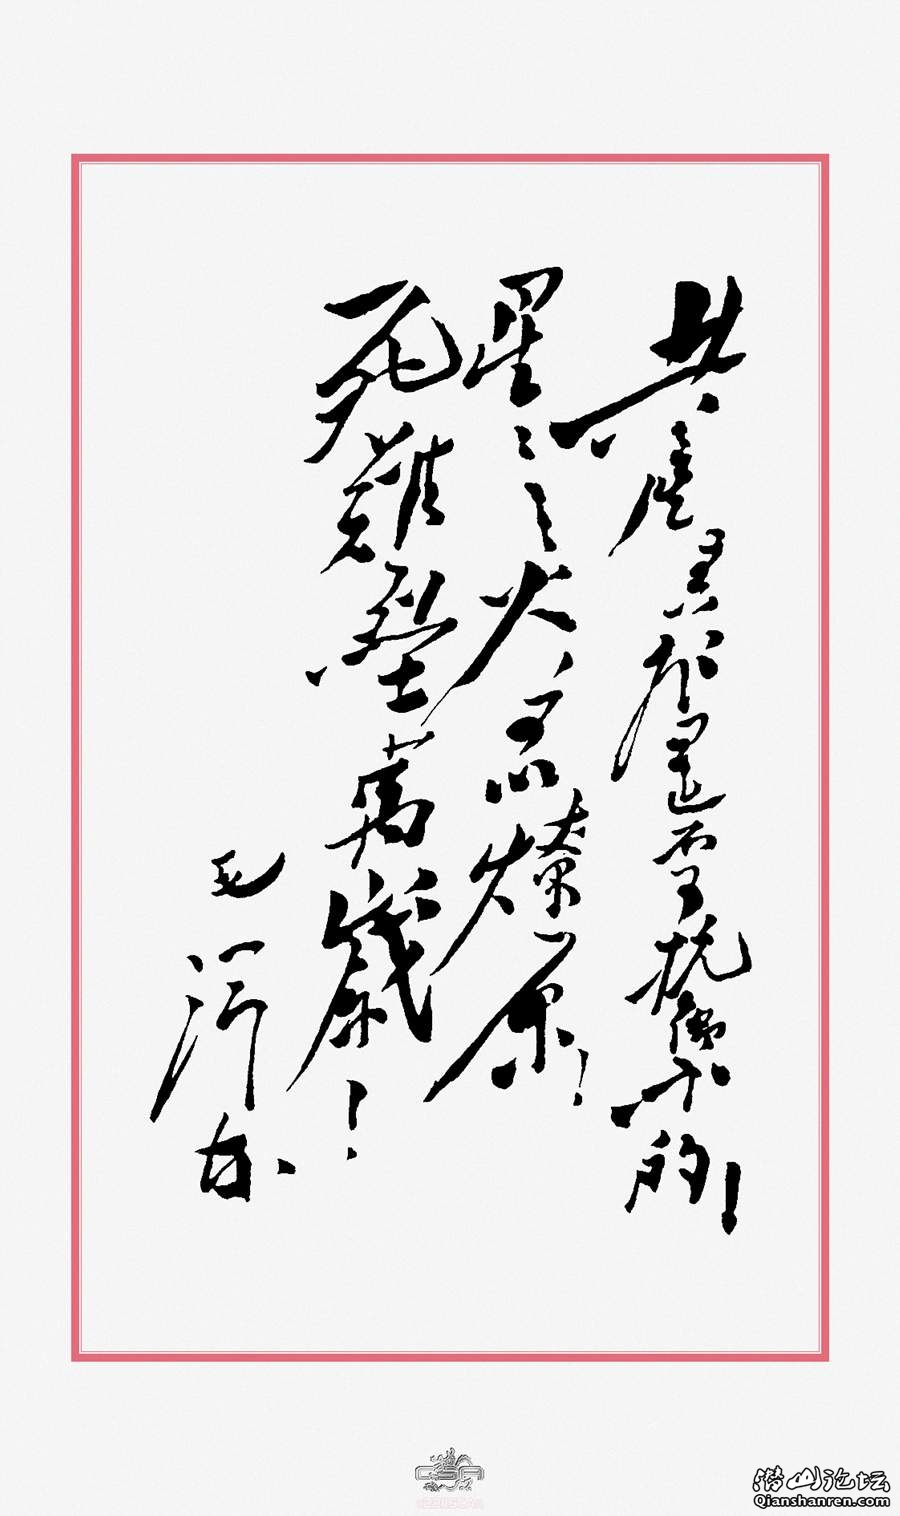 共產主義是不可抗禦的！
星星之火可以燎原！
死難烈士萬歲！
毛澤东
潜山论坛
Qianshanren.com